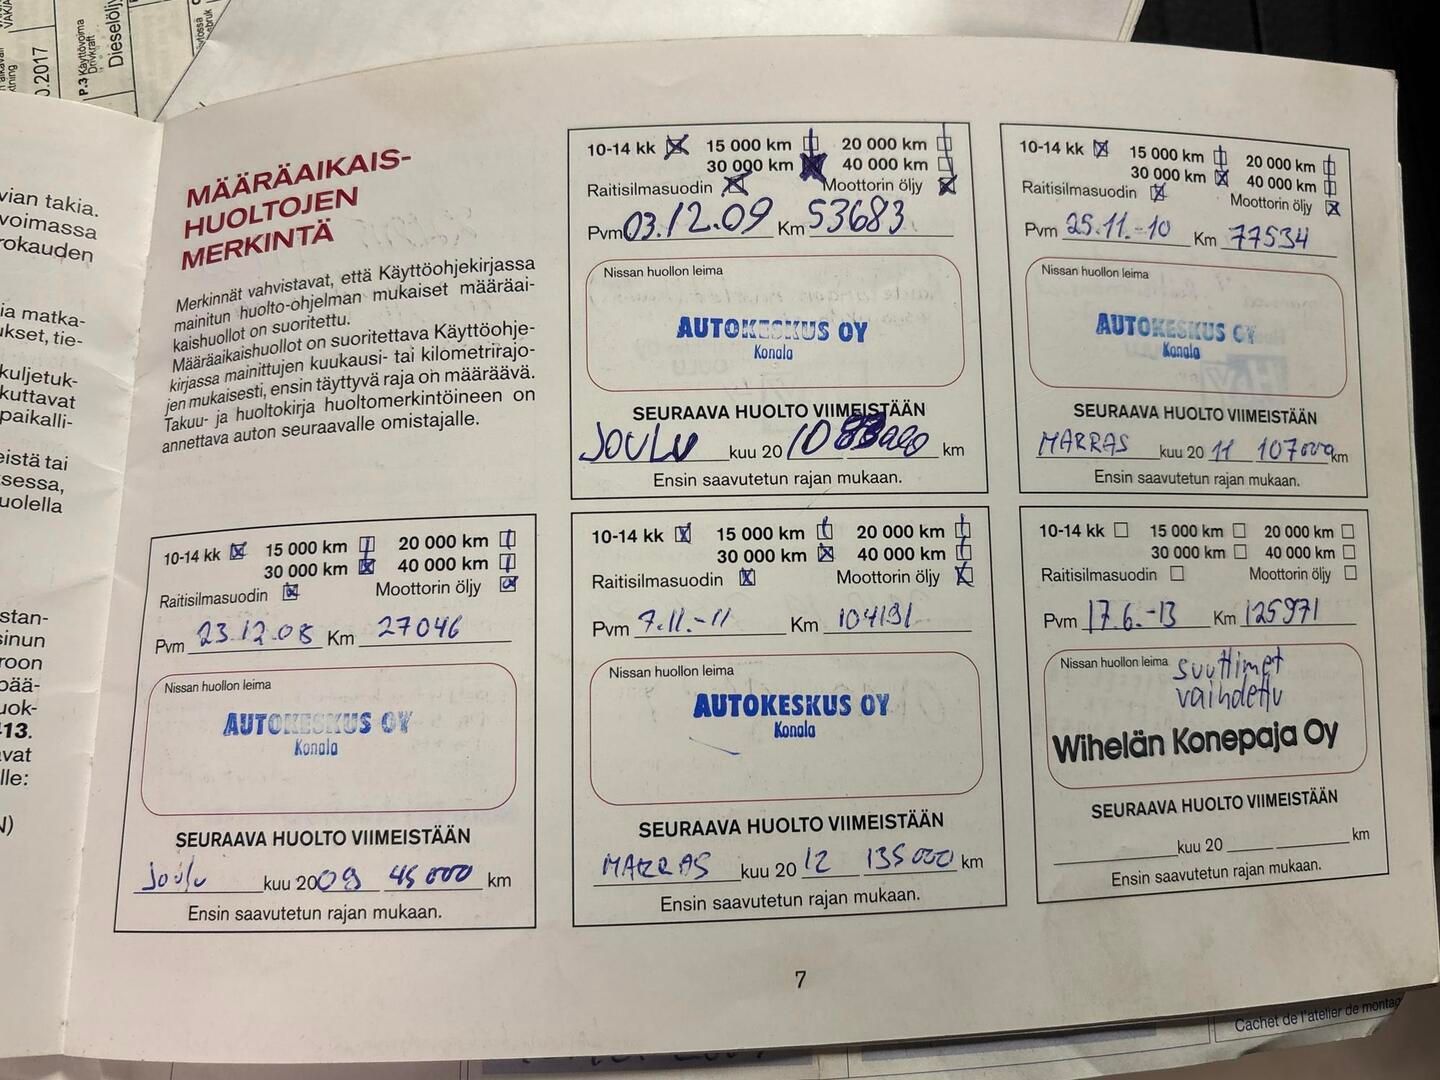 0.2017
P.3 Käyttövoima
Drivkraft
Dieselölj
vian takia.
voimassa
rokauden
ia matka-
ukset, tie-
kuljetuk-
kuttavat
paikalli-
eistä tai
sessa,
uolella
stan-
sinun
roon
pää-
uok-
413.
avat
lle:
N)
MÄÄRÄAIKAIS-
HUOLTOJEN
MERKINTÄ
Merkinnät vahvistavat, että Käyttöohjekirjassa
mainitun huolto-ohjelman mukaiset määräai-
kaishuollot on suoritettu.
Määräaikaishuollot on suoritettava Käyttöohje-
kirjassa mainittujen kuukausi- tai kilometrirajo-
jen mukaisesti, ensin täyttyvä raja on määräävä.
Takuu- ja huoltokirja huoltomerkintöineen on
annettava auton seuraavalle omistajalle.
10-14 kk 15 000 km 20 000 km
30 000 km 40 000 km
Raitisilmasuodin Moottorin öljy
Pvm 03.12.09 Km 53683
Nissan huollon leima
AUTOKESKUS OY
Konala
SEURAAVA HUOLTO VIIMEISTÄÄN
JOULU kuu 20 10 km
Ensin saavutetun rajan mukaan.
10-14 kk 15 000 km 20 000 km
30 000 km 40 000 km
Raitisilmasuodin Moottorin öljy
Pvm 25.11.-10 Km 77534
Nissan huollon leima
AUTOKESKUS OY
Konala
SEURAAVA HUOLTO VIIMEISTÄÄN
MARRAS kuu 20 11 107000 km
Ensin saavutetun rajan mukaan.
10-14 kk 15 000 km 20 000 km
30 000 km 40 000 km
Raitisilmasuodin Moottorin öljy
Pvm 23.12.08 Km 27046
Nissan huollon leima
AUTOKESKUS OY
Konala
SEURAAVA HUOLTO VIIMEISTÄÄN
Joulu kuu 2009 45 000 km
Ensin saavutetun rajan mukaan.
10-14 kk 15 000 km 20 000 km
30 000 km 40 000 km
Raitisilmasuodin Moottorin öljy
Pvm 7.11.-11 Km 104191
Nissan huollon leima
AUTOKESKUS OY
Konala
SEURAAVA HUOLTO VIIMEISTÄÄN
MARRAS kuu 20 12 135 000 km
Ensin saavutetun rajan mukaan.
10-14 kk 15 000 km 20 000 km
30 000 km 40 000 km
Raitisilmasuodin Moottorin öljy
Pvm 17.6.-13 Km 125971
Nissan huollon leima suuttimet
vaihdettu
Wihelän Konepaja Oy
SEURAAVA HUOLTO VIIMEISTÄÄN
kuu 20 km
Ensin saavutetun rajan mukaan.
7
Cachet de l'atelier de montag